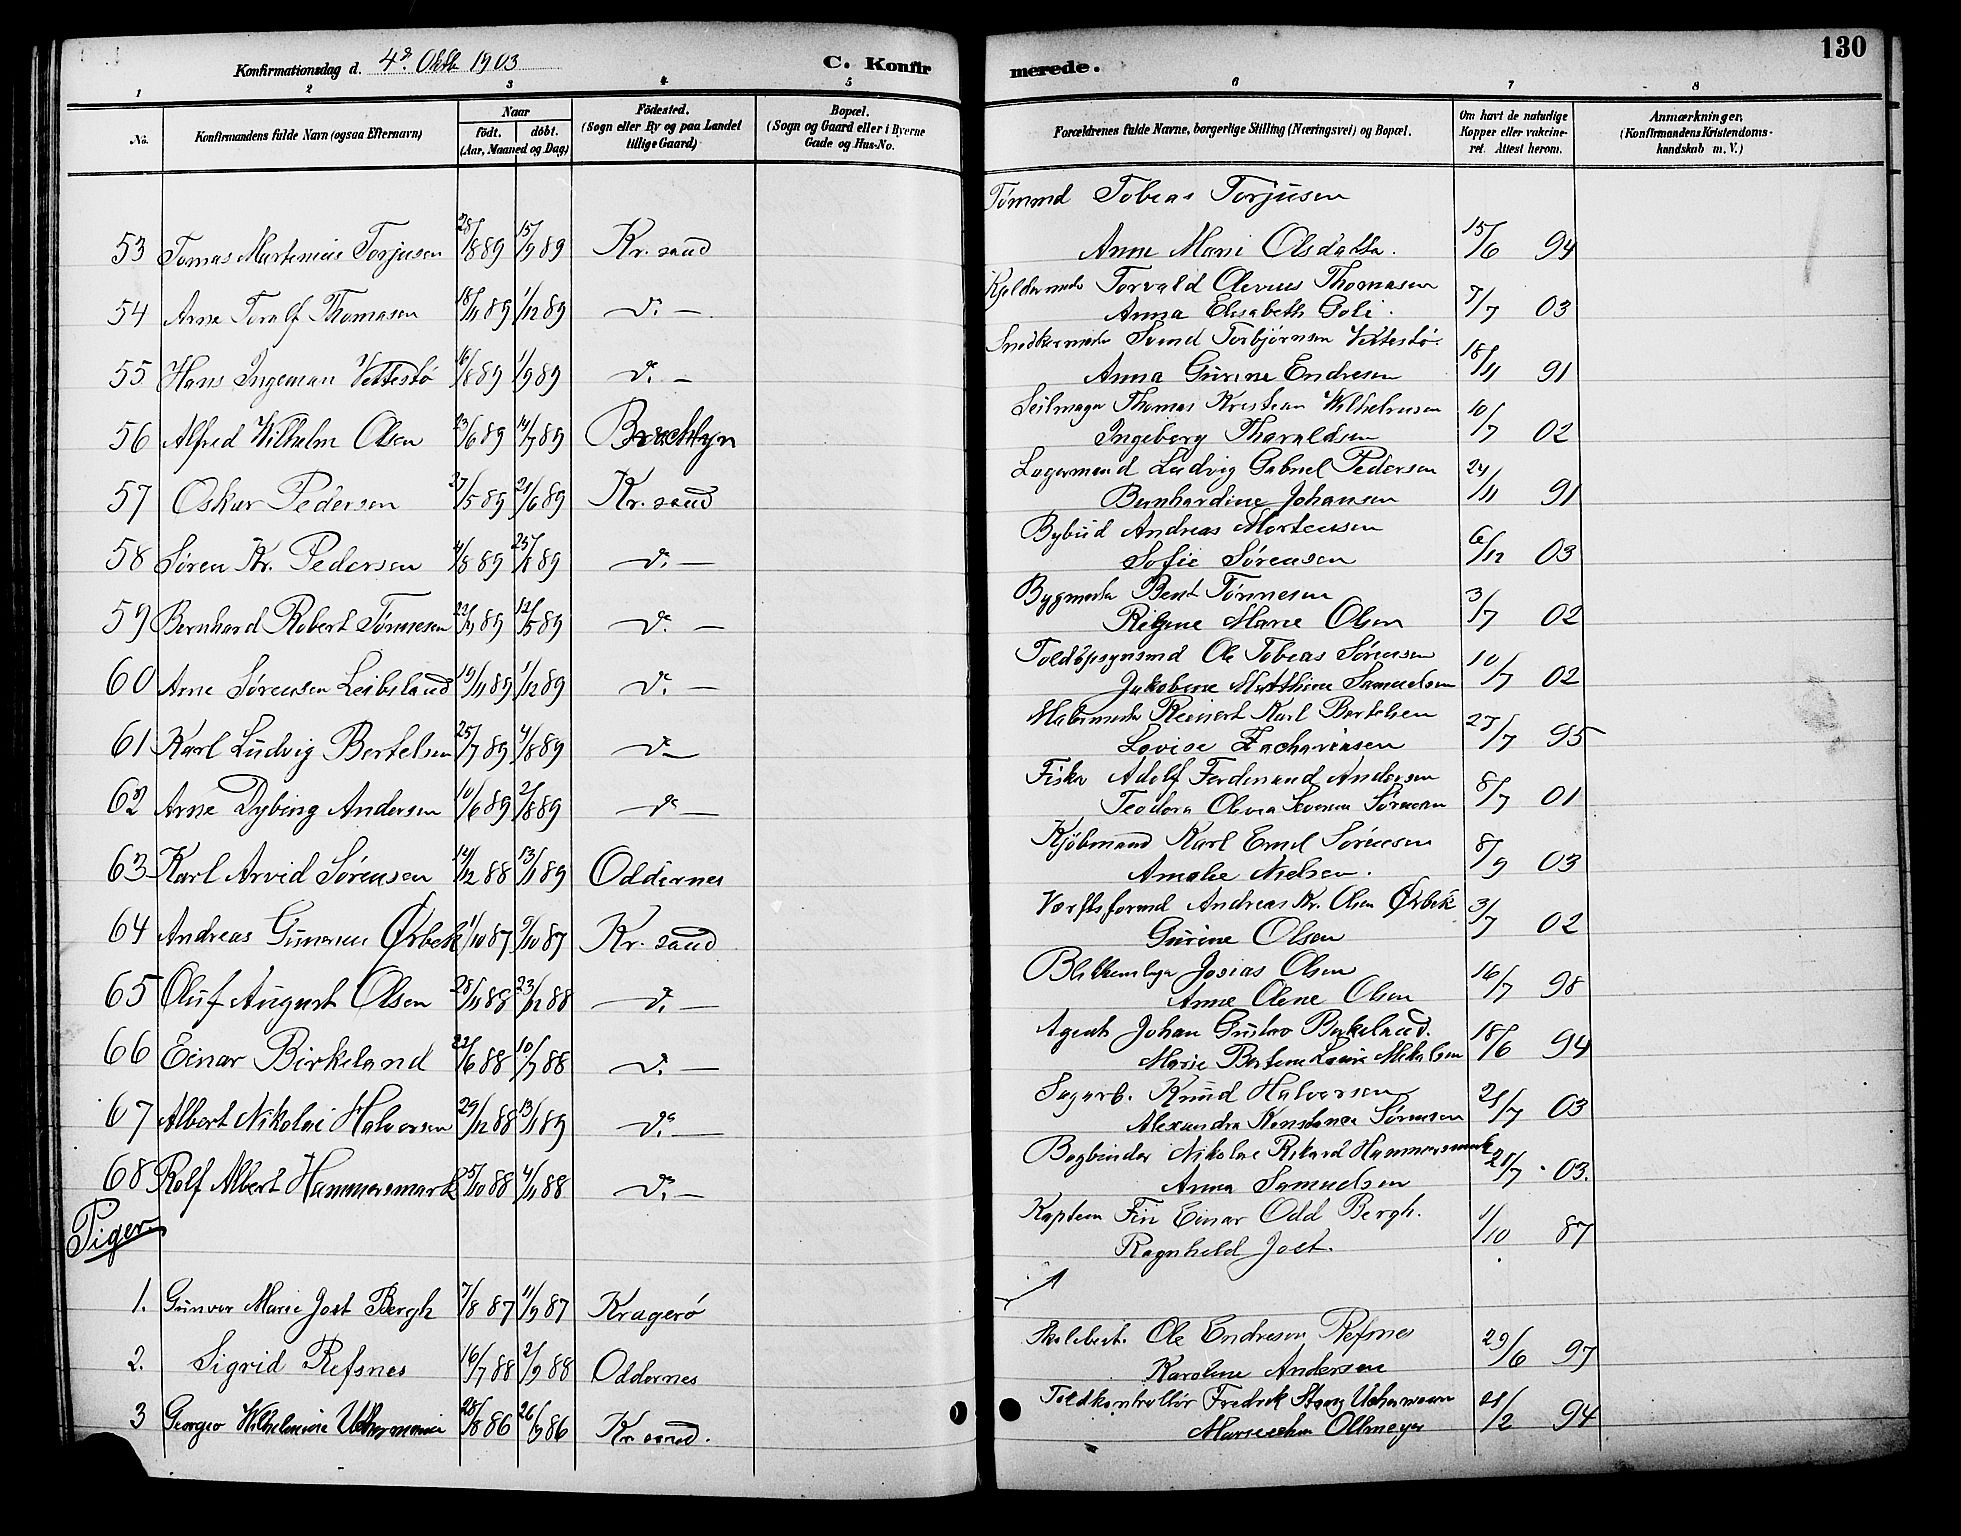 130
Konfirmationsdag d. 4de Oktb 1903
C. Konfirmerede.
1 2 3 4 5 6 7 8
No. Konfirmandens fulde Navn (ogsaa Efternavn) Naar født. døbt. (Aar, Maaned og Dag) Födested. (Sogn eller By og paa Landet tillige Gaard) Bopæl. (Sogn og Gaard eller i Byerne Gade og Hus-No. Forældrenes fulde Navne, borgerlige Stilling (Næringsvei) og Bopæl. Om havt de naturlige Kopper eller vakcineret. Attest herom. Anmærkninger, (Konfirmandens Kristendomskundskab m. V.)
Tømmd Tobias Torjusen
53 Tomas Martinius Torjusen 28/8 89 15/9 89 Kr. sand Anne Marie Olsdatter. 15/6 94
Torvald Olevius Thomasen
54 Arne Toralf Thomasen 18/11 89 1/12 89 do. — Anna Elisabeth Goli. 7/7 03
Svend Torbjørnsen Vettestø
55 Hans Ingeman Vettestø 16/8 89 1/9 89 do. — Anna Gurine Endresen 18/11 91
Seilmager Thomas Kristian Wilhelmsen
56 Alfred Wilhelm Olsen 23/6 89 14/7 89 Ingeborg Tharaldsen 10/7 02
Lagermand Ludvig Gabriel Pedersen
57 Oskar Pedersen 27/5 89 21/6 89 Kr. sand Bernhardine Johansen 24/11 91
Bybud Andreas Mortensen
58 Søren Kr. Pedersen 4/8 89 25/8 89 do. — Sofie Sørensen 6/12 03
Bygmester Bent Tønnesen
59 Bernhard Robert Tønnesen 22/4 89 12/5 89 do. — Regine Marie Olsen 3/7 02
Toldopsynsmd Ole Tobias Sørensen
60 Arne Sørensen Leibsland 19/11 89 1/12 89 do. — Jakobine Mathine Samuelsen 10/7 02
Malermester Reinert Karl Bertelsen
61 Karl Ludvig Bertelsen 25/7 89 4/8 89 do — Lovise Zachariasen 27/7 95
Fisker Adolf Ferdinand Andersen
62 Arne Dybing Andersen 10/6 89 2/8 89 do — Teodora Olevia Severine Sørensen 8/7 01
Kjøbmand Karl Emil Sørensen
63 Karl Arvid Sørensen 14/12 88 13/1 89 Oddernes Amalie Nielsen. 8/9 03
Værftsformd Andreas Kr. Olsen Ørbek
64 Andreas Ørbek 1/10 87 9/10 87 Kr. sand Gurine Olsen 3/7 02
Blikkenslager Josias Olsen
65 Oluf August Olsen 28/11 88 23/12 88 do. — Anne Olene Olsen 16/7 98
Agent Johan Gustav Birkeland.
66 Einar Birkeland 22/6 88 10/7 88 do. — Marie Bertine Mikalsen 18/6 94
Sagarb. Knud Halvorsen
67 Albert Nikolai Halvorsen 29/12 88 13/1 89 do. — Alexandra Konstance Sørensen 21/7 03
Bogbinder Nikolai Rikard Hammersmark
68 Rolf Albert Hammersmark 5/10 88 4/11 88 do. — Anna Samuelsen 21/7 . 03.
Piger
Kaptein Fin Einar Odd Bergh.
Ragnhild Jost. 1/10 87
1. Gunvor Marie Jost Bergh 7/8 87 11/9 87 Kragerø
Skolebest. Ole Endresen Refsnes
2. Sigrid Refsnes 16/7 88 2/9 88 Oddernes Karoline Andersen 29/6 97
Toldkontrollør Fredrik Stang Uchermann
3 Wilhelmine Uchermann 28/8 86 26/9 86 Kr. sand. Ollmeyer 21/2 94